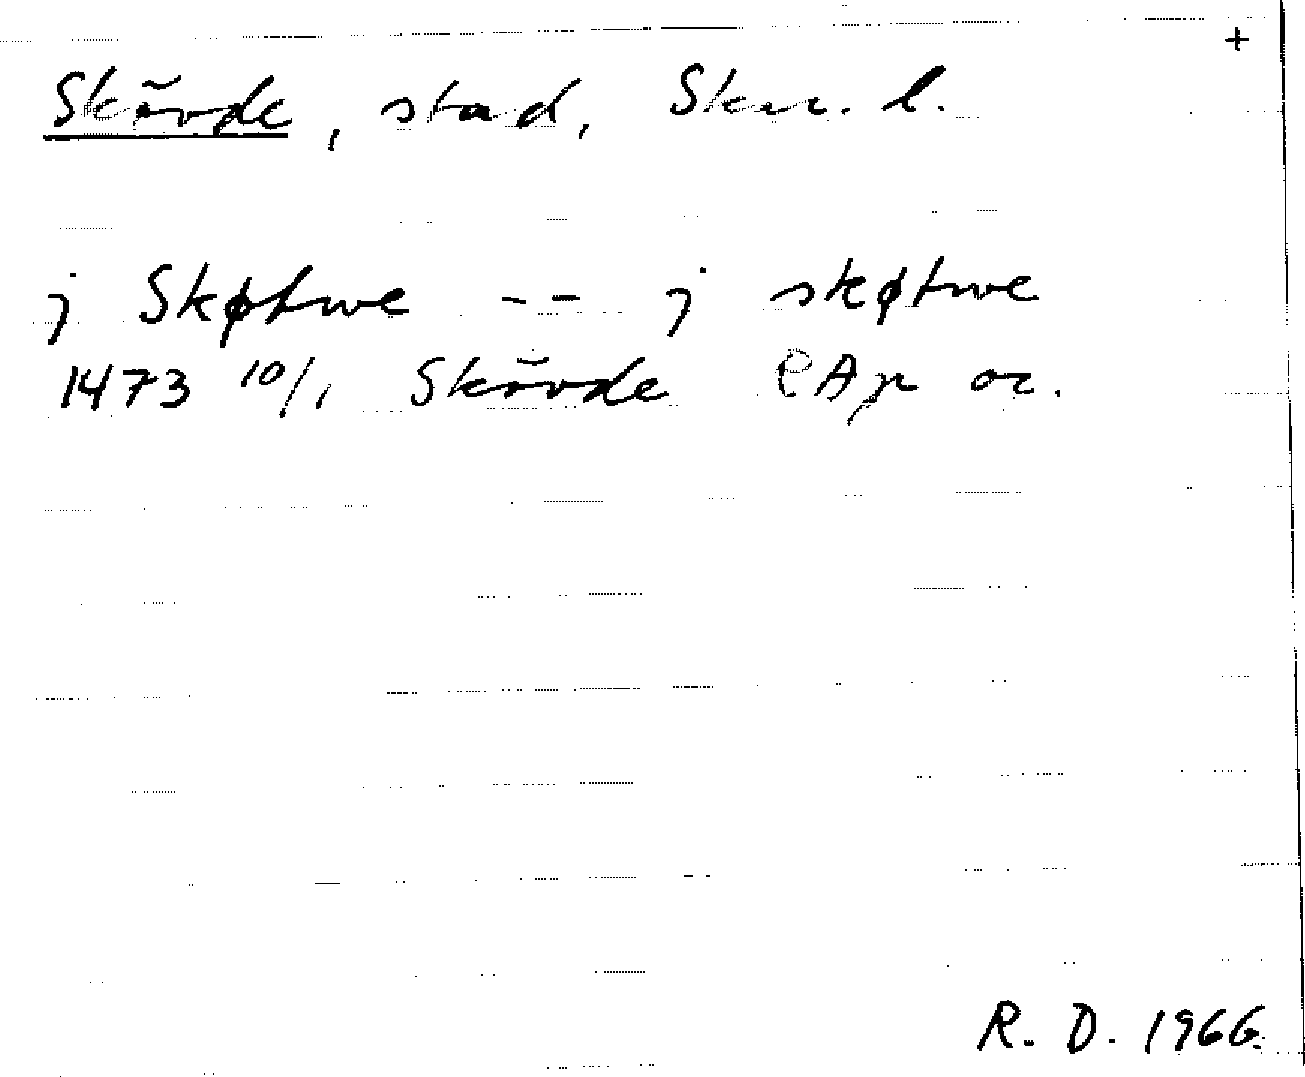 +
Skövde, stad, Skar. l.
j Skøtwe -- j skøtwe
1473 10/1 Skövde RAp or.
R. D. 1966